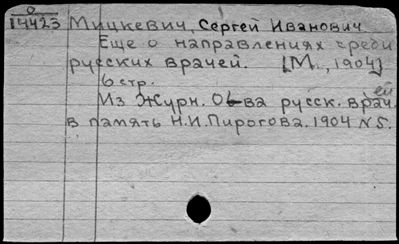 0
14423 Мицкевич, Сергей Иванович
Еще о направлениях среди
русских врачей. [М., 1904]
6 стр.
Из Журн. Об-ва русск. врачей
в память Н.И.Пирогова. 1904 N 5.